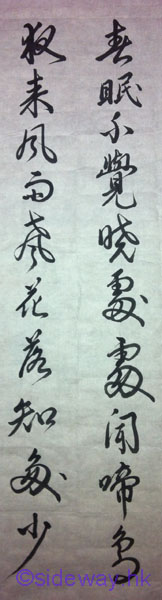 春眠不覺曉處處聞啼鳥
夜来風雨聲花落知多少
©sideway.hk